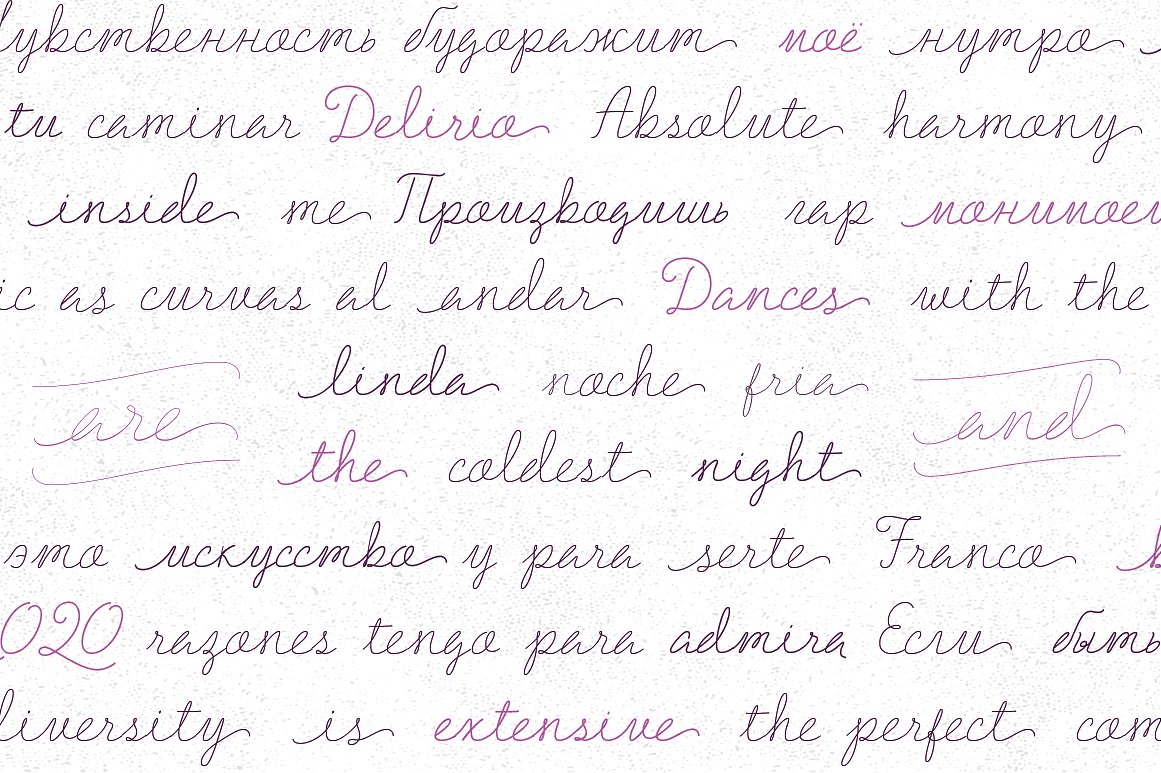 чувственность будоражит моё нутро
tu caminar Delirio Absolute harmony
inside me Производишь гар
ic as curvas al andar Dances with the
linda noche fria
are and
the coldest night
это искусство y para serte Franco
2020 razones tengo para admira Если быть
diversity is extensive the perfect com